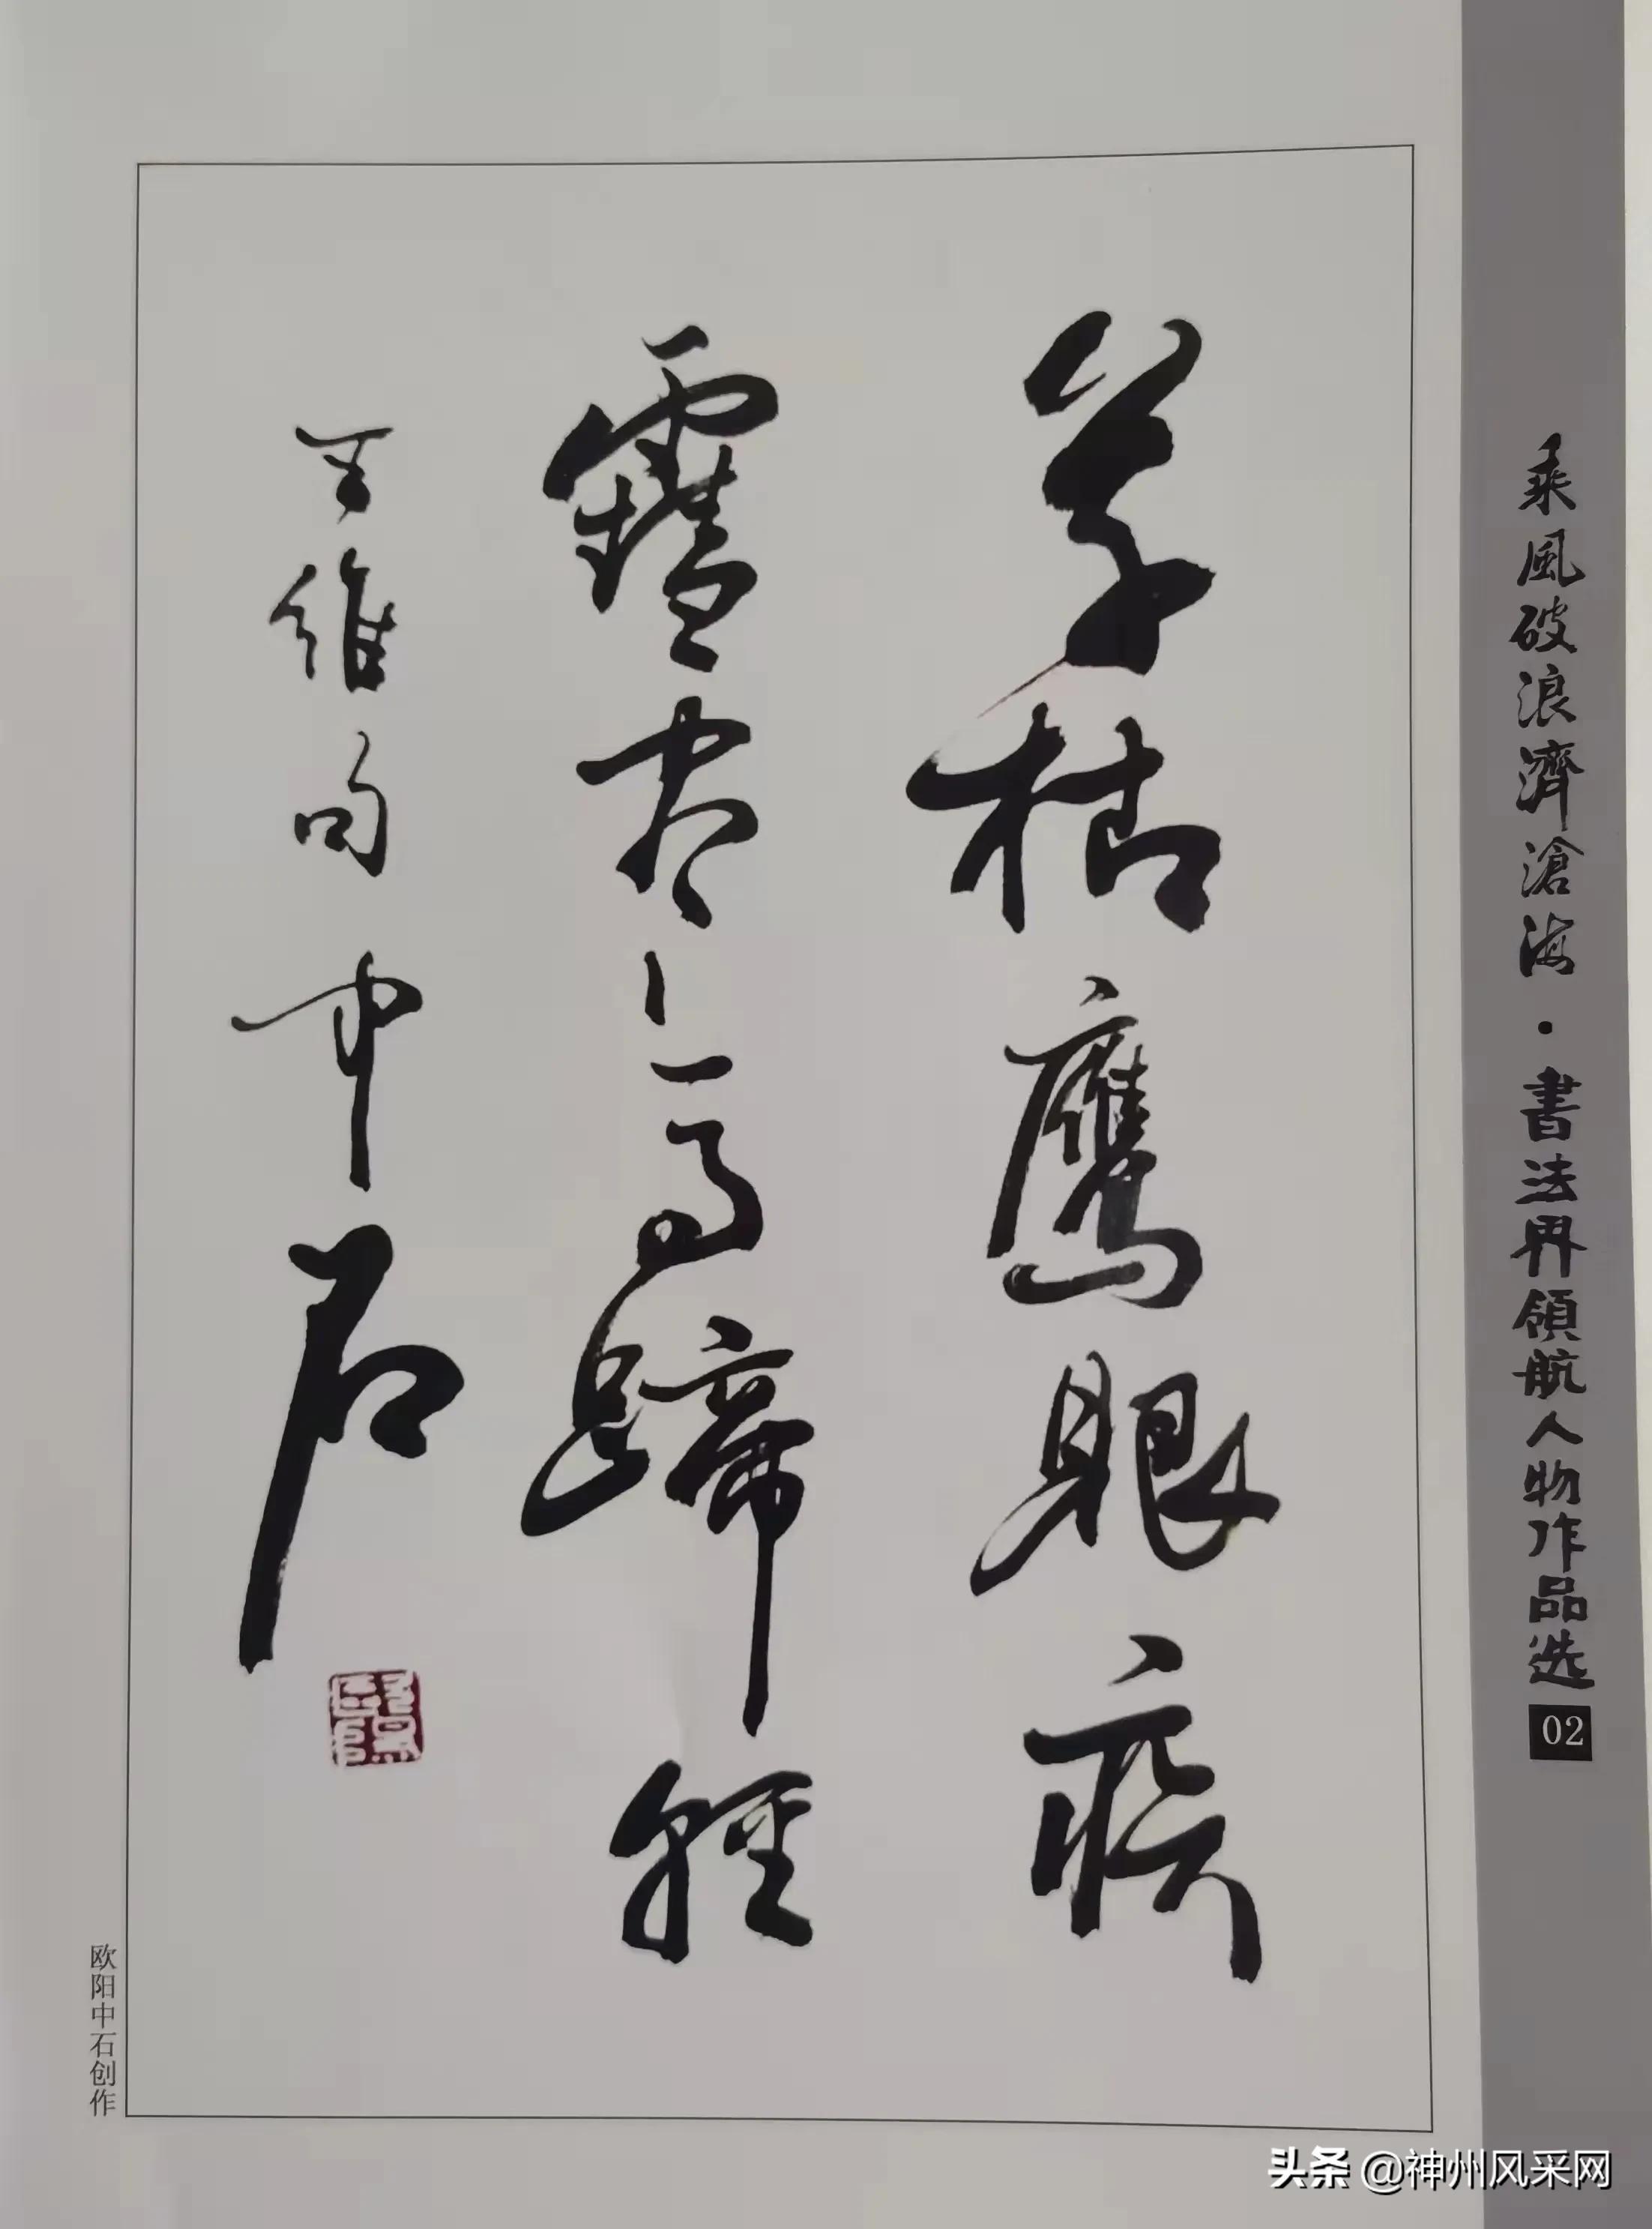 乘風破浪濟滄海·書法界領航人物作品选 02
草枯鷹眼疾
雪尽马蹄轻
王维句中石
欧阳中石创作
头条 @神州风采网